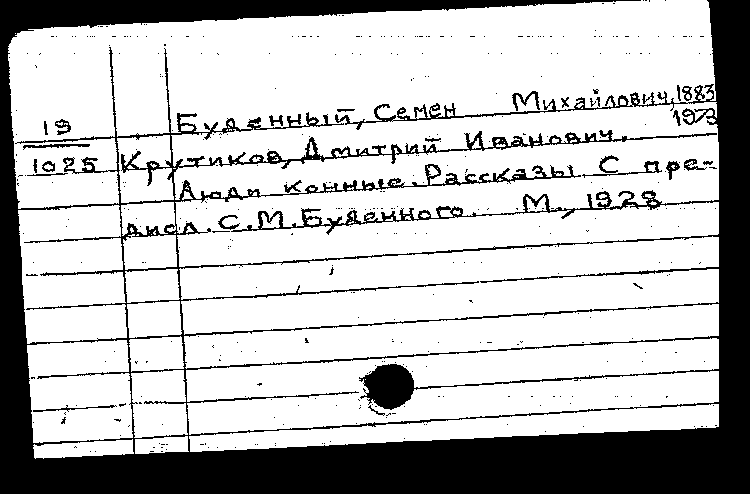 Буденный, Семен Михайлович, 1883
1973
19
1025 Крутиков, Дмитрий Иванович.
Люди конные. Рассказы. С пре-
дисл. С.М.Буденного. М., 1928